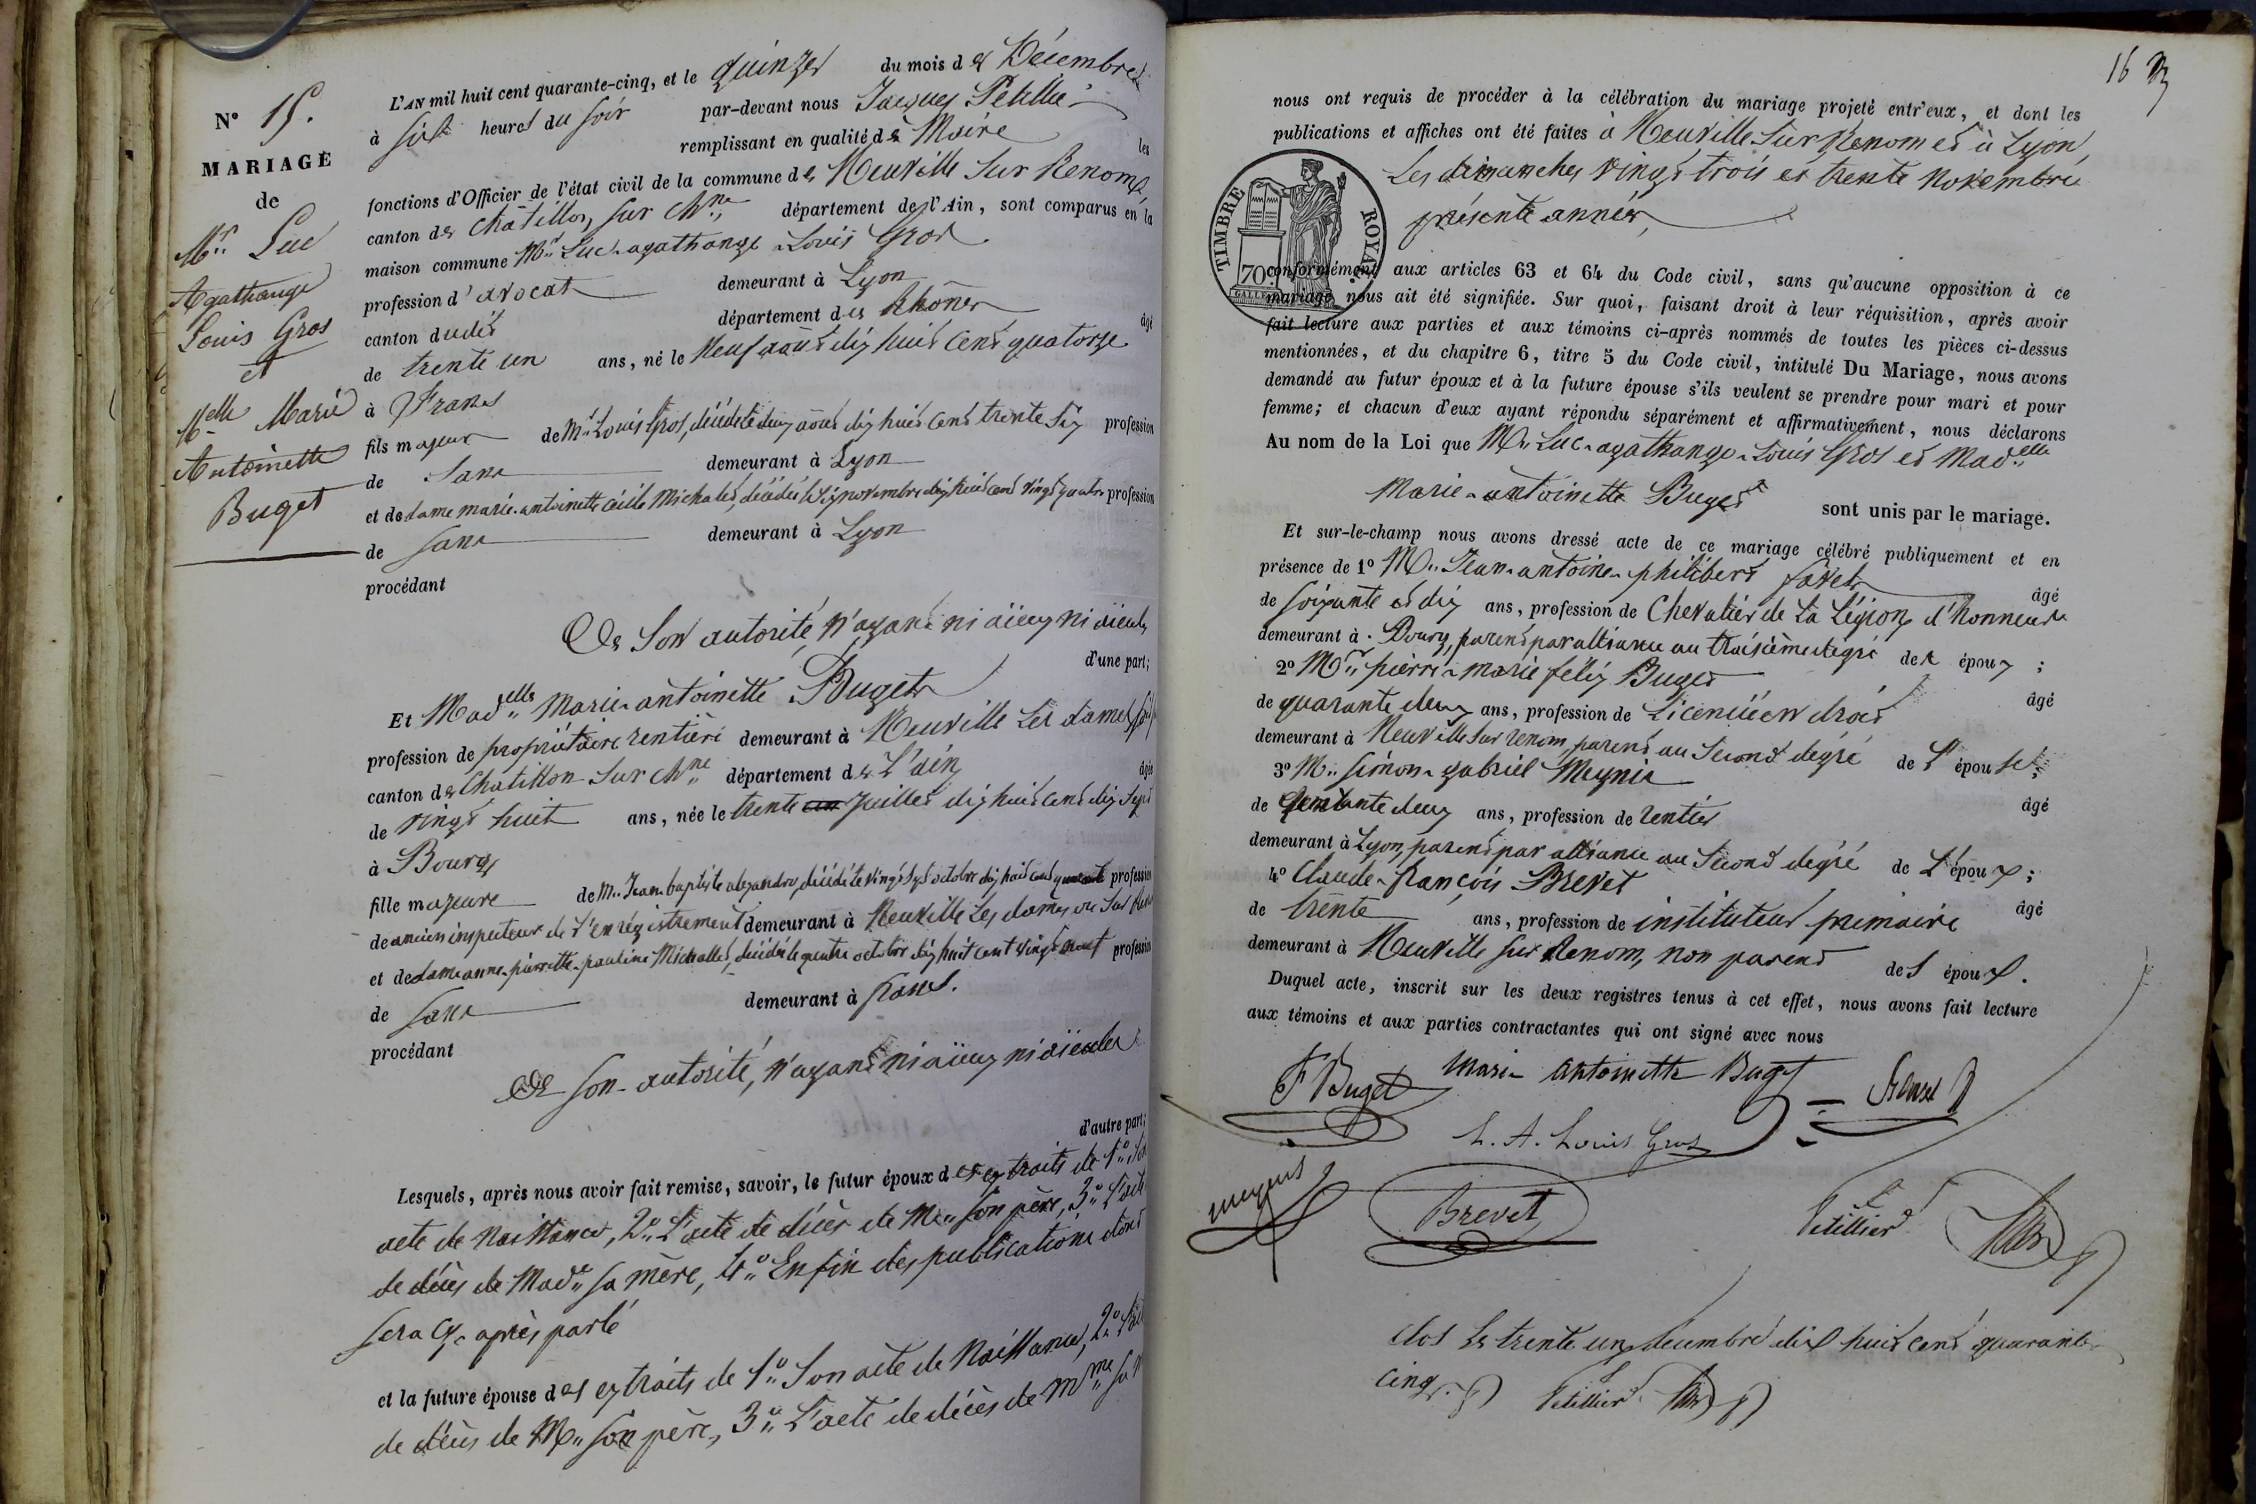 N° 15.
MARIAGE
de
Mr. Luc
Agathange
Louis Gros
et
Melle Marie
Antoinette
Buget
L'AN mil huit cent quarante-cinq, et le quinze du mois de Décembre
à six heures du soir par-devant nous Jacques
remplissant en qualité de Maire les
fonctions d'Officier de l'état civil de la commune de Neuville sur Renom,
canton de Châtillon sur Chne, département de l'Ain, sont comparus en la
maison commune Mr. Luc-agathange-Louis Gros
profession d'avocat demeurant à Lyon
canton dudit département du Rhône âgé
de trente un ans, né le Neuf août dix huit cent quatorze
à Frans
fils majeur de Mr. Louis Gros, décédé le deux août dix huit cent trente six profession
de sans demeurant à Lyon
et de dame marie-antoinette cécile Michalet, décédée le six novembre dix huit cent vingt quatre profession
de sans demeurant à Lyon
procédant
De Son autorité, n'ayant ni aïeux ni aïeules
d'une part;
Et Madelle marie-antoinette Buget
profession de propriétaire rentière demeurant à Neuville Les dames
canton de Chatillon Sur Chne département de L'ain âgée
de vingt huit ans, née le trente un juillet dix huit cent dix sept
à Bourg
fille majeure de Mr. Jean-baptiste alexandre, décédé le vingt sept octobre dix huit cent quarante profession
de ancien inspecteur de l'enrégistrement demeurant à Neuville Les dames ou Sur
et de dame anne-pierrette-pauline Michallet, décédée le quatre octobre dix huit cent vingt profession
de sans demeurant à frans.
procédant
De son autorité, n'ayant ni aïeux ni aïeules
d'autre part;
Lesquels, après nous avoir fait remise, savoir, le futur époux des extraits de 1° Son
acte de Naissance, 2° L'acte de décès de Mr. Son père, 3° L'acte
de décès de Made. sa mère, 4° Enfin des publications dont
sera cy-après parlé
et la future épouse des extraits de 1° Son acte de Naissance, 2°
de décès de Mr. Son père, 3° L'acte de décès de Mme
16
nous ont requis de procéder à la célébration du mariage projeté entr'eux, et dont les
publications et affiches ont été faites à Neuville Sur Renom et à Lyon,
Les dimanches vingt trois et trente Novembre
présente année,
TIMBRE ROYAL
70
conformément aux articles 63 et 64 du Code civil, sans qu'aucune opposition à ce
mariage nous ait été signifiée. Sur quoi, faisant droit à leur réquisition, après avoir
fait lecture aux parties et aux témoins ci-après nommés de toutes les pièces ci-dessus
mentionnées, et du chapitre 6, titre 5 du Code civil, intitulé Du Mariage, nous avons
demandé au futur époux et à la future épouse s'ils veulent se prendre pour mari et pour
femme; et chacun d'eux ayant répondu séparément et affirmativement, nous déclarons
Au nom de la Loi que Mr. Luc-agathange-Louis Gros et Madelle
Marie-antoinette Buget sont unis par le mariage.
Et sur-le-champ nous avons dressé acte de ce mariage célébré publiquement et en
présence de 1° Mr. Jean-antoine-philibert âgé
de soixante et dix ans, profession de Chevalier de la Légion d'honneur
demeurant à Bourg, parent par alliance au troisième degré de l'époux;
2° Mr. pierre-marie félix Buget âgé
de quarante deux ans, profession de Licencié en droit
demeurant à Neuville Sur renom, parent au Second degré de l'épouse;
3° Mr. Simon-gabriel Meynis âgé
de deux ans, profession de rentier
demeurant à Lyon, parent par alliance au Second degré de L'époux;
4° Claude-françois Brevet âgé
de trente ans, profession de instituteur primaire
demeurant à Neuville Sur Renom, non parent des époux.
Duquel acte, inscrit sur les deux registres tenus à cet effet, nous avons fait lecture
aux témoins et aux parties contractantes qui ont signé avec nous
F Buget Marie Antoinette Buget
L. A. Louis Gros
Meynis Brevet Petillier
Clos le trente un décembre dix huit cent quarante
cinq. Petillier